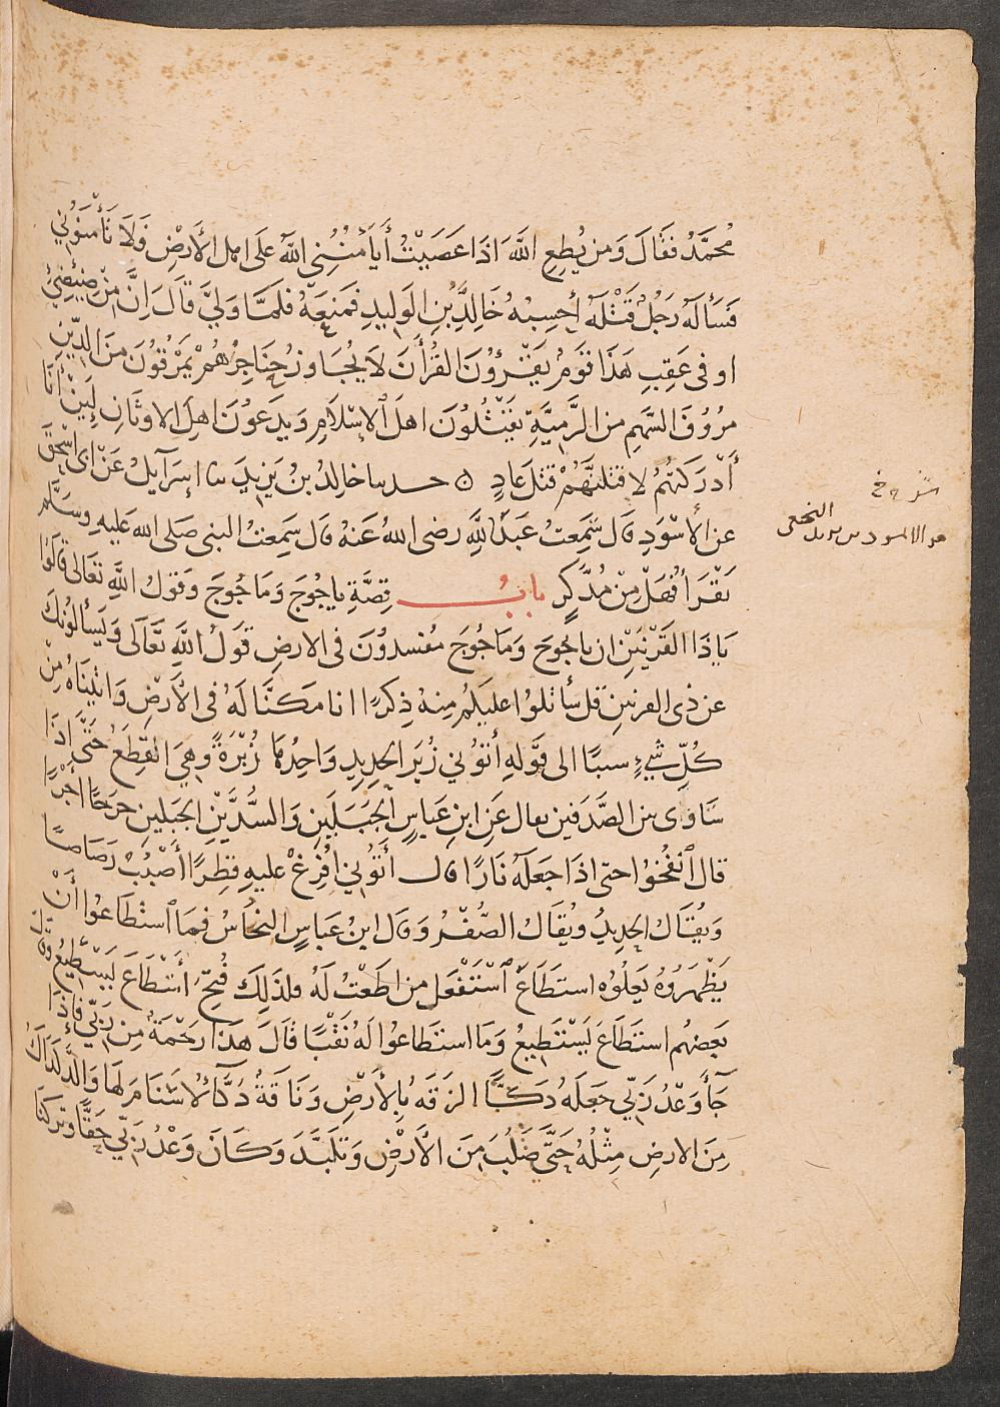 مُحَمَّدُ فَقَالَ وَمَن يُطِعِ اللَّهَ اذَا عَصَيْتُ أَيَأْمَنُنِي اللهُ عَلَى اهل الأَرْضِ وَلَا تَأْمَنُونِي
فَسَأَلَهُ رَجُلٌ قَتْلَهُ أَحْسِبُهُ خَالِدَ بْنَ الوَلِيدِ فَمَنَعَهُ فَلَمَّا وَلَّى قَالَ إِنَّ مِنْ ضِئْضِئِ
او فى عَقِبِ هَذَا قَوْمٌ يَقْرَؤُنَ القُرْأَنَ لَا يُجَاوِزُ حَنَاجِرَهُمْ يَمْرُقُونَ مِنَ الدِّينِ
مُرُوقَ السَّهمِ من الرَّمِيَّةِ يَقْتُلُونَ اهلَ الإسْلَامِ وَيَدَعُونَ اهلَ الاوثَانِ لَئِنْ أَنَا
أَدْرَكْتُهُمْ لاقتُلَنَّهُمْ قَتْلَ عَادٍ ۝ حدثنا خالدُ بنُ يَزِيدَ ثنا إِسرَآيلُ عَنْ ابى اسْحَقَ
عن الأَسْوَدِ قَالَ سَمِعتُ عَبْدَ اللَّهِ رضى اللهُ عَنهُ قَالَ سَمِعتُ النبى صَلى الله عَليهِ وسَلَّم
يَقْرَأُ فَهَلْ مِنْ مُدَّكِرٍ بابُ قِصَّةِ ياجُوجَ وَمَاجُوجَ وَقَولُ اللَّهِ تَعَالى قَالُوا
يَاذَا القَرْنَيْنِ ان ياجُوجَ وَمَاجُوجَ مُفسدُونَ فى الارضِ قَولُ اللَّهِ تَعَالَى وَيَسأَلُونَكَ
عن ذى القرنينِ قل سَأَتلُوا عليكُم مِنهُ ذِكرًا انا مَكَنَّا لَهُ فى الأَرْضِ وَاتَيْنَاهُ مِنْ
كُلِّ شَيءٍ سببًا الى قَولهِ أتُونِي زُبَرَ الحَدِيدِ وَاحِدُهَا زُبْرَةٌ وهِيَ القِطَعُ حَتَّى اذَا
سَاوَى بين الصَّدَفَين يقال عَنِ ابنِ عَباسٍ الجَبَلَينِ وَالسُّدَّيْنِ الجَبَلين خَرجًا أَجْرًا
قال انفُخُوا حتى اذَا جعَلَهُ نَارًا قال أَتُونِي اُفْرِغْ عليهِ قِطرًا أَصْبُبْ رَصَاصًا
وَيُقَالُ الحَدِيدُ ويُقَالُ الصُّفْرُ وَقَالَ ابنُ عَبَاسٍ النحَاسُ فَمَا اسْطَاعُوا أَنْ
يَظْهَرُوهُ يَعْلُوهُ استَطَاعَ اسْتَفْعَلَ من اطَعْتُ لَهُ فلذَلِكَ فُتِحَ أَسْطَاعَ يَسْطِيعُ وقال
بَعضُهم استَطَاعَ يَسْتَطِيعُ وَمَا استَطَاعوا لَهُ نَقْبًا قَالَ هَذَا رَحْمَةٌ مِن رَبِّي فَإِذَا
جَاءَ وَعْدُ رَبِّي جَعَلَهُ دَكًّا الزَقَه بِالأَرْضِ وَنَاقَةٌ دَكَّاءُ لَا سَنَامَ لَهَا وَالدَّكْدَاكُ
مِنَ الارضِ مِثْلُهُ حَتَّى صَلُبَ مِنَ الأَرْضِ وَتَلَبَّدَ وَكَانَ وَعْدُ رَبِّي حَقًّا وتركنا
هو الاسود بن يزيد النخعى